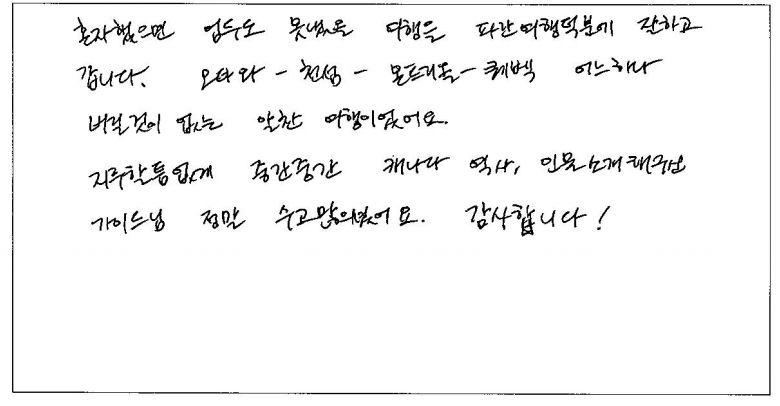 혼자했으면 엄두도 못냈을 여행을 파란여행덕분에 잘하고
갑니다. 오타와 - 천섬 - 몬트리올 - 퀘벡 어느하나
버릴것이 없는 알찬 여행이었어요.
지루할틈없게 중간중간 캐나다 역사, 인물소개해주신
가이드님 정말 수고많으셨어요. 감사합니다!